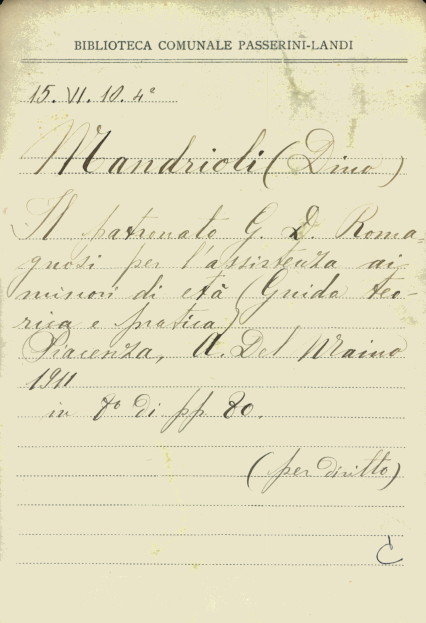 BIBLIOTECA COMUNALE PASSERINI-LANDI
15. VI. 10. 4º
Mandrioli (Dino)
Il patronato G. D. Roma=
gnosi per l'assistenza ai
minori di età (Guida teo-
rica e pratica)
Piacenza, A. Del Maino
1911
in 8º di pp 80.
(per diritto)
C